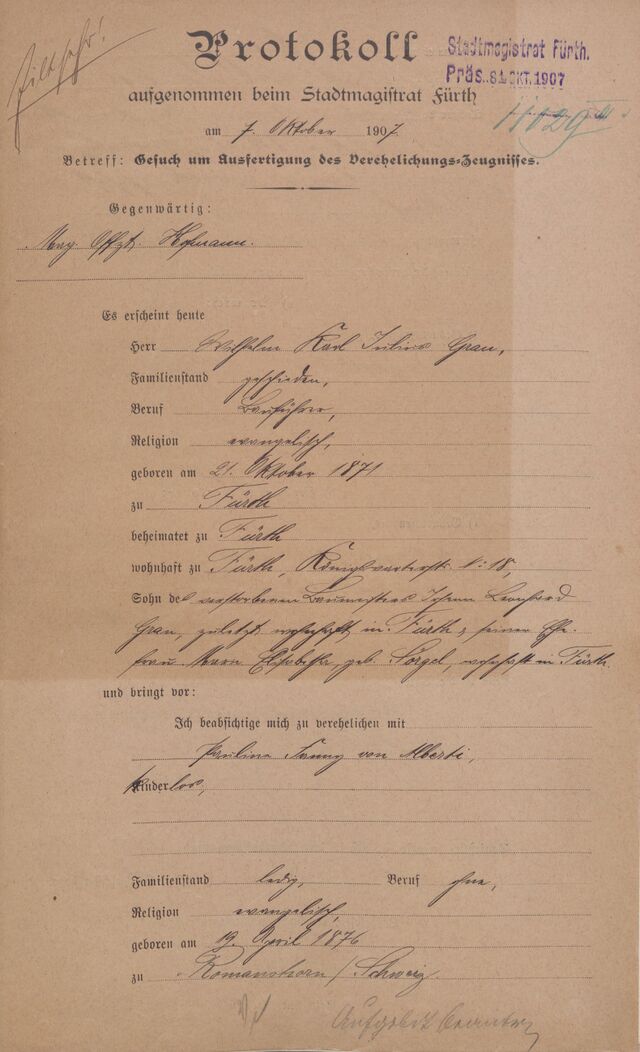 Protokoll
Stadtmagistrat Fürth.
Präs. 8. OKT. 1907
Eilt sehr!
aufgenommen beim Stadtmagistrat Fürth
am 7. Oktober 1907.
Betreff: Gesuch um Ausfertigung des Verehelichungs-Zeugnisses.
Gegenwärtig:
Mag. Offzt. Hofmann.
Es erscheint heute
Herr Wilhelm Karl Julius Gran,
Familienstand geschieden,
Beruf Bauführer,
Religion evangelisch,
geboren am 21. Oktober 1871
zu Fürth
beheimatet zu Fürth
wohnhaft zu Fürth, Königswarterstr. N: 18,
Sohn des verstorbenen Baumeisters Johann Leonhard
Gran, zuletzt wohnhaft in Fürth & seiner Ehe-
frau Elisabetha, geb. Sörgel, wohnhaft in Fürth.
und bringt vor:
Ich beabsichtige mich zu verehelichen mit
Pauline Fanny von Alberti,
Kinderlos,
Familienstand ledig, Beruf ohne,
Religion evangelisch,
geboren am 19. April 1876
zu Romanshorn / Schweiz.
Aufgebot beantr.